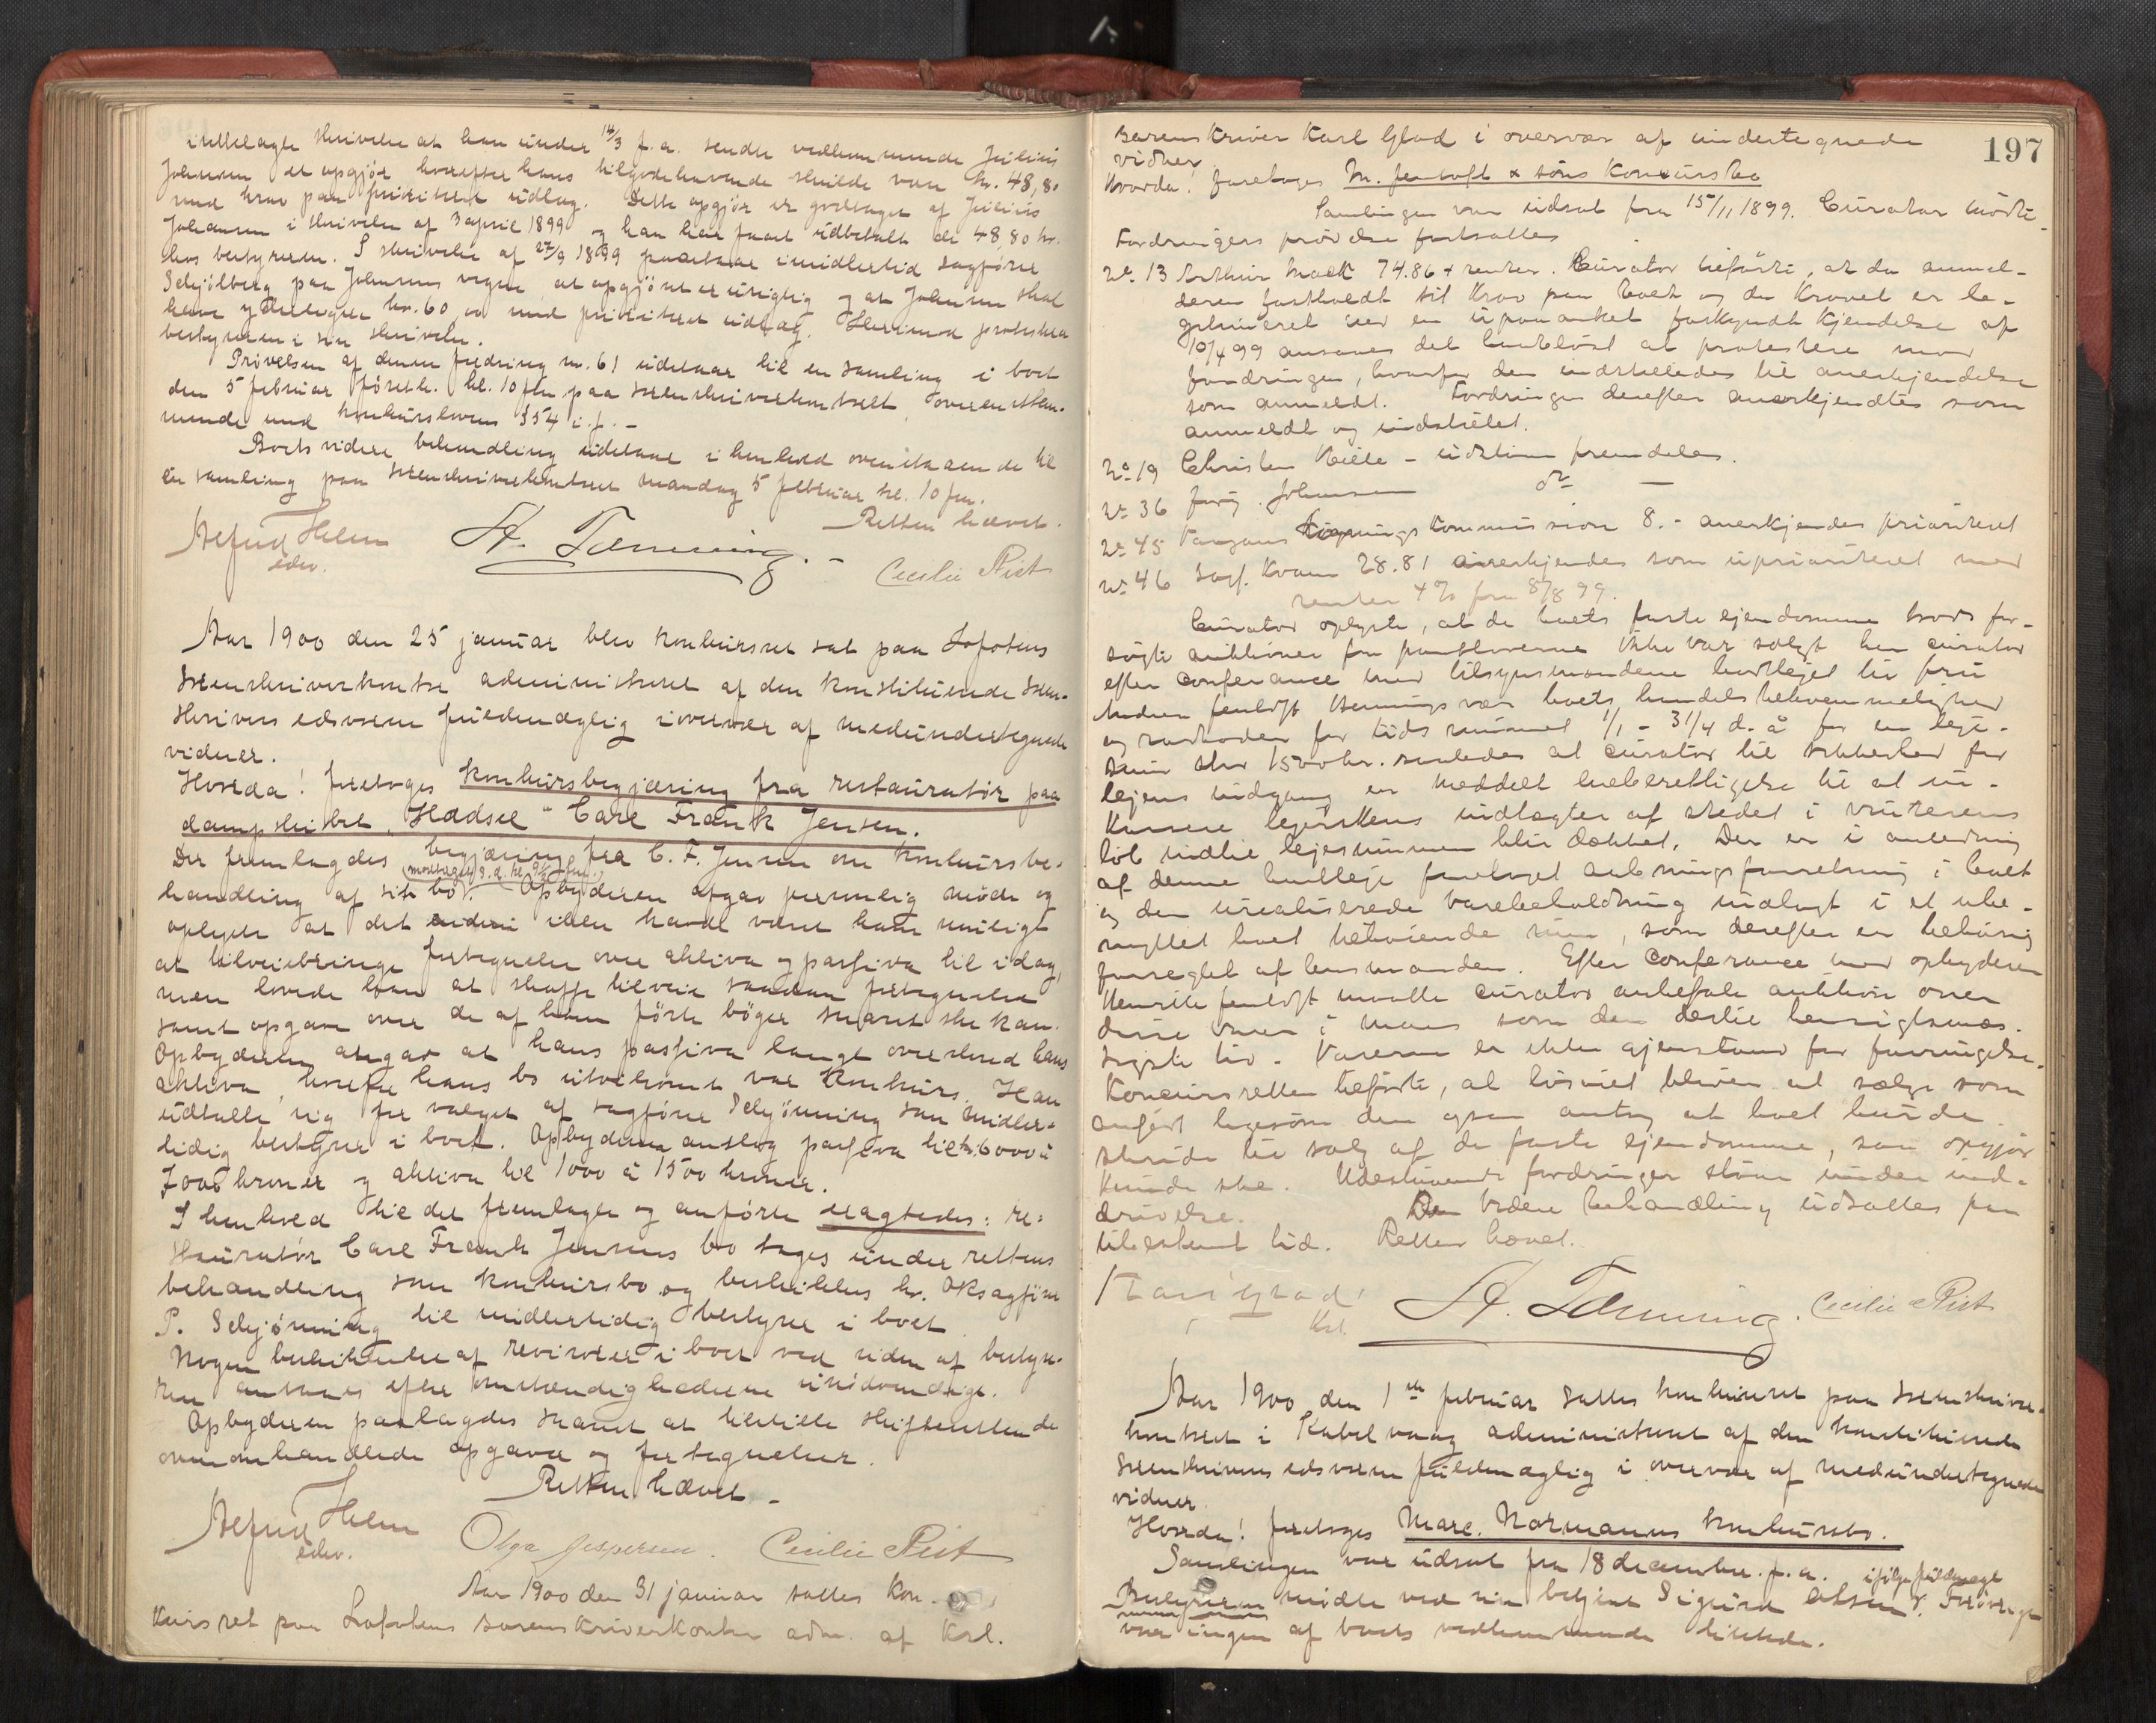 indtelagte skrivelse at han under 14/3 f.a. sendte vedkommende Julius
Johansen et opgjør hvorefter hans tilgodehavende skulde være kr. 48,80
med krav paa prioriteret udlæg. Dette opgjør er godtaget af Julius
Johansen i skrivelse af 3 april 1899 og han har faaet udbetalt de 48,80 kr.
hos bestyreren. I skrivelse af 27/9 1899 paastaar imidlertid sagfører
Schjølberg paa Johansens vegne at opgjøret er urigtig og at Johansen skal
have yderligere kr. 60,00 med prioriteret udlæg. Herimod protesterer
bestyreren i sin skrivelse.
Prøvelsen af denne fordring nr. 61 udstaar til en samling i boet
den 5 februar førstk. kl. 10 fm. paa sorenskriverkontoret, overensstem-
mende med konkurslovens § 54 i.f. -
Boets videre behandling udstaar i henhold ovenstaaende til
en samling paa sorenskriverkontoret mandag 5 februar kl. 10 fm.
Retten hævet.
Alfred Helm
edsv.
St. Tømming. -
Cecilie Rist
Aar 1900 den 25 januar blev konkursret sat paa Lofotens
sorenskriverkontor administreret af den konstituerede soren-
skrivers edsvorne fuldmægtig i overvær af medundertegnede
vidner.
Hvorda! foretoges konkursbegjæring fra restauratør paa
dampskibet "Hadsel" Carl Frank Jensen.
Der fremlagdes begjæring fra C. F. Jensen om konkursbe-
(modtaget d.d. kl. 9½ fm.)
handling af sit bo. Opbyderen afgav personlig møde og
oplyste at det endnu ikke havde været ham muligt
at tilveiebringe fortegnelse over aktiva og passiva til idag,
men lovede ham at skaffe tilveie saadan fortegnelse
samt opgave over de af ham førte bøger snarest ske kan.
Opbyderen angav at hans passiva langt oversteed hans
aktiva, hvorfor hans bo utvilsomt var konkurs. Han
udtalte sig for valget af sagfører Schjønning som midler-
tidig bestyrer i boet. Opbyderen anslog passiva til kr. 6000 à
7000 kroner og aktiva til 1000 à 1500 kroner.
I henhold til det fremlagte og anførte eragtedes: re-
stauratør Carl Frank Jensens bo tages under rettens
behandling som konkursbo og beskikkes hr. oksagfører
P. Schjønning til midlertidig bestyrer i boet.
Nogen beskikkelse af revisorer i boet ved siden af besty-
ren ansaaes efter omstændighederne unødvendige.
Opbyderen paalagdes snarest at tilstille skifteretten de
ovenomhandlede opgaver og fortegnelser.
Retten hævet -
Alfred Helm
edsv.
Olga Jespersen. Cecilie Rist
Aar 1900 den 31 januar sattes kon-
kursret paa Lofotens sorenskriverkontor adm. af kst.
197
sorenskriver Karl Glad i overvær af undertegnede
vidner
Hvorda! foretoges M. Jentoft & søns Konkursbo
Samlingen var udsat fra 15/11 1899. Curator mødte
Fordringers prøvelse fortsattes
No. 13 Arthur Mack 74.86 + renter. Curator tilførte, at da anmel-
deren fastholdt sit krav paa boet og da kravet er le-
gitimeret ved en upaaanket forkyndt kjendelse af
10/4 99 ansaaes det hensigtsløst at protestere mod
fordringen, hvorfor den indstilledes til anerkjendelse
som anmeldt. Fordringen derefter anerkjendtes som
anmeldt og indstillet.
No. 19 Christen Kiille - udstaar fremdeles.
No. 36 Jørg. Johnsen do -
No. 45 Vaagans Ligningskommission 8.- anerkjendes prioriteret
No. 46 Sagf. Kvam 28.81 anerkjendes som uprioriteret med
renter 4% fra 8/8 99.
Curator oplyste, at da boets faste ejendomme trods for-
søgte auktioner fra panthaverne ikke var solgt har curator
efter conferance med tilsynsmændene bortlejet til fru
Jentoft Henningsvær boets handelsbekvemmelighed
og rorboder for tidsrummet 1/1 - 31/4 d.å for en leje-
sum stor 1500 kr. saaledes at curator til sikkerhed for
lejens indgang er meddelt eneberettigelse til at in-
kassere lejerskens indtægter af stedet i vinterens
løb indtil lejesummen blir dækket. Der er i anledning
af denne bortleje foretaget aabningsforretning i boet
og den urealiserede varebeholdning indlagt i et ube-
nyttet boet tilhørende rum, som derefter er behørig
forseglet af lensmanden. Efter conferance med opbyderen
Henrik Jentoft maatte curator anbefale auktion over
disse varer i marts som den dertil hensigtsmæs-
sigste tid. Varerne er ikke gjenstand for forringelse.
Konkursretten tilførte, at løsøret bliver at sælge som
anført ligesom den ogsaa antog at boet burde
skride til salg af de faste ejendomme, saa opgjør
kunde ske. Udestaaende fordringer staar under ind-
drivelse. Den videre behandling udsattes paa
ubestemt tid. Retten hævet.
Karl Glad
kst.
St. Tømming. Cecilie Rist
Aar 1900 den 1ste februar sattes konkursret paa sorenskriver-
kontoret i Kabelvaag administreret af den konstituerede
sorenskrivers edsvorne fuldmægtig i overvær af medundertegnede
vidner.
Hvorda! foretoges Marc. Normanns konkursbo.
Samlingen var udsat fra 18 december f.a. ifølge fuldmagt
Bestyreren mødte ved sin betjent Sigurd Olsen. Forøvrigt
var ingen af boets vedkommende tilstede.